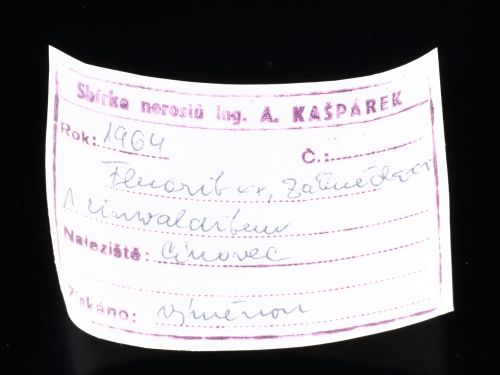 Sbírka nerostů ing. A. KAŠPÁREK
Rok: 1964 Č.:
Fluorit xx,
s cinvalditem
Naleziště: Cínovec
Získáno: výměnou